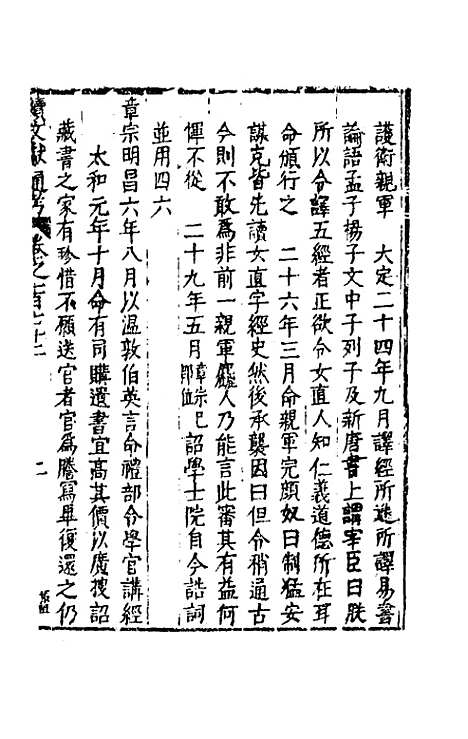 護衛親軍　大定二十四年九月譯經所進所譯易書
論語孟子揚子文中子列子及新唐書上謂宰臣曰朕
所以令譯五經者正欲令女直人知仁義道德所在耳
命頒行之　二十六年三月命親軍完顏奴曰制猛安
謀克皆先讀女直字經史然後承襲因曰但令稍通古
今則不敢爲非前一親軍麤人乃能言此審其有益何
憚不從　二十九年五月章宗已即位詔學士院自今誥詞
並用四六
章宗明昌六年八月以溫敦伯英言命禮部令學官講經
太和元年十月命有司購遺書宜高其價以廣搜詔
藏書之家有珍惜不願送官者官爲謄寫畢復還之仍
續文獻通考　卷之一百七十二　二